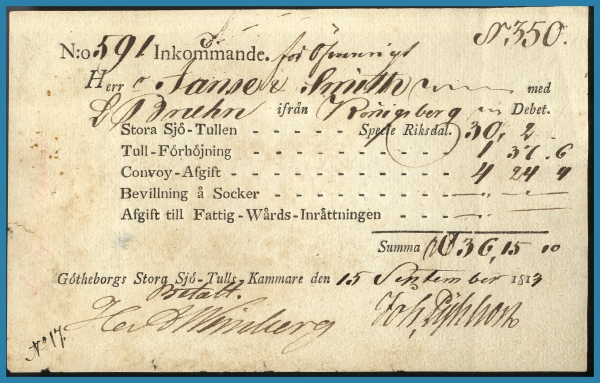 N:o 591 Inkommande. N 350.
Herr Janse & Smith med
L Bruhn ifrån Königsberg Debet.
Stora Sjö-Tullen - - - - - Specie Riksdal. 30, 2
Tull-Förhöjning - - - - - - - - - - 1 37. 6
Convoy-Afgift - - - - - - - - - - 4 24 4
Bevillning å Socker - - - - - - - - -
Afgift till Fattig-Wårds-Inråttningen - - - -
Summa 36, 15 10
Götheborgs Stora Sjö-Tulls-Kammare den 15 September 1813
Betalt.
N:o 17.